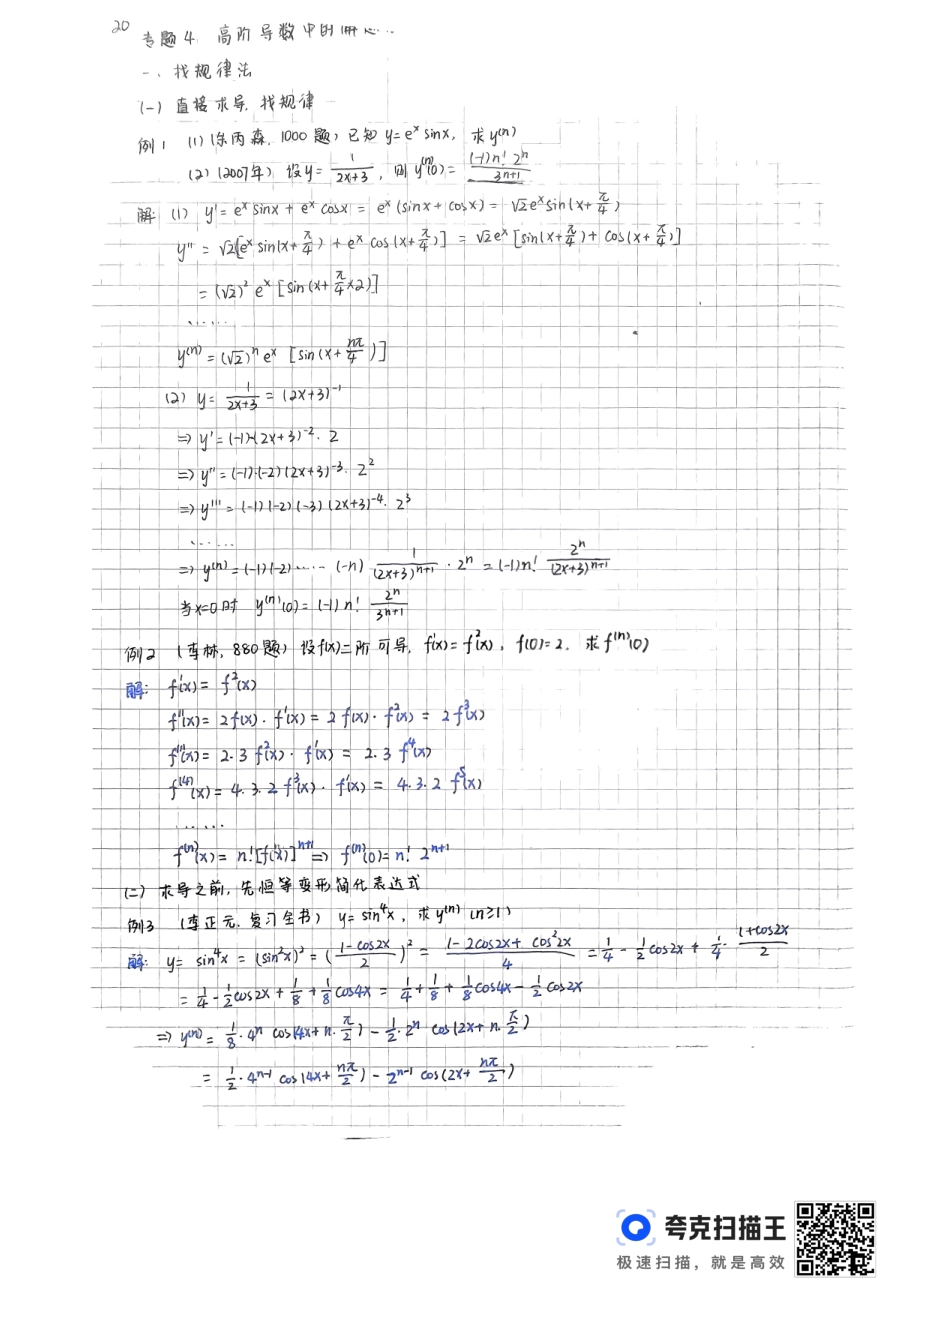 20
专题4. 高阶导数中的
一、找规律法
(一) 直接求导, 找规律
例1 (1) (朱丙森, 1000题) 已知 y=eˣ sinx, 求y⁽ⁿ⁾
(2) (2007年) 设y= 1/(2x+3), 则 y⁽ⁿ⁾(0)= (-1)n! 2ⁿ/3ⁿ⁺¹
解 (1) y'= eˣ sinx + eˣ cosx = eˣ (sinx + cosx) = √2 eˣ sin(x+ π/4)
y'' = √2[eˣ sin(x+ π/4) + eˣ cos(x+ π/4)] = √2 eˣ [sin(x+ π/4)+ cos(x+ π/4)]
= (√2)² eˣ [sin(x+ π/4 ×2)]
......
y⁽ⁿ⁾ = (√2)ⁿ eˣ [sin(x+ nπ/4)]
(2) y= 1/(2x+3) = (2x+3)⁻¹
⇒ y'= (-1)(2x+3)⁻²· 2
⇒ y''= (-1)·(-2)(2x+3)⁻³· 2²
⇒ y'''= (-1)(-2)(-3)(2x+3)⁻⁴· 2³
......
⇒ y⁽ⁿ⁾= (-1)(-2)······(-n) 1/(2x+3)ⁿ⁺¹ · 2ⁿ = (-1)n! 2ⁿ/(2x+3)ⁿ⁺¹
当x=0时 y⁽ⁿ⁾(0)= (-1) n! 2ⁿ/3ⁿ⁺¹
例2 (李林, 880题) 设f(x)二阶可导, f'(x)= f²(x), f(0)=2. 求f⁽ⁿ⁾(0)
解: f'(x)= f²(x)
f''(x)= 2f(x)· f'(x) = 2 f(x)· f²(x) = 2 f³(x)
f'''(x)= 2·3 f²(x)· f'(x) = 2·3 f⁴(x)
f⁽⁴⁾(x)= 4·3·2 f³(x)· f'(x) = 4·3·2 f⁵(x)
......
f⁽ⁿ⁾(x)= n![f(x)]ⁿ⁺¹ ⇒ f⁽ⁿ⁾(0)= n! 2ⁿ⁺¹
(二) 求导之前, 先恒等变形简化表达式
例3 (李正元. 复习全书) y= sin⁴x, 求y⁽ⁿ⁾ (n≥1)
解: y= sin⁴x = (sin²x)² = ( (1-cos2x)/2 )² = (1-2cos2x+ cos²2x)/4 = 1/4 - 1/2 cos2x + 1/4 · (1+cos2x)/2
= 1/4 - 1/2 cos2x + 1/8 + 1/8 cos4x = 1/4 + 1/8 + 1/8 cos4x - 1/2 cos2x
⇒ y⁽ⁿ⁾= 1/8 · 4ⁿ cos(4x+ n· π/2) - 1/2 · 2ⁿ cos(2x+ n· π/2)
= 1/2 · 4ⁿ⁻¹ cos(4x+ nπ/2) - 2ⁿ⁻¹ cos(2x+ nπ/2)
夸克扫描王
极速扫描，就是高效